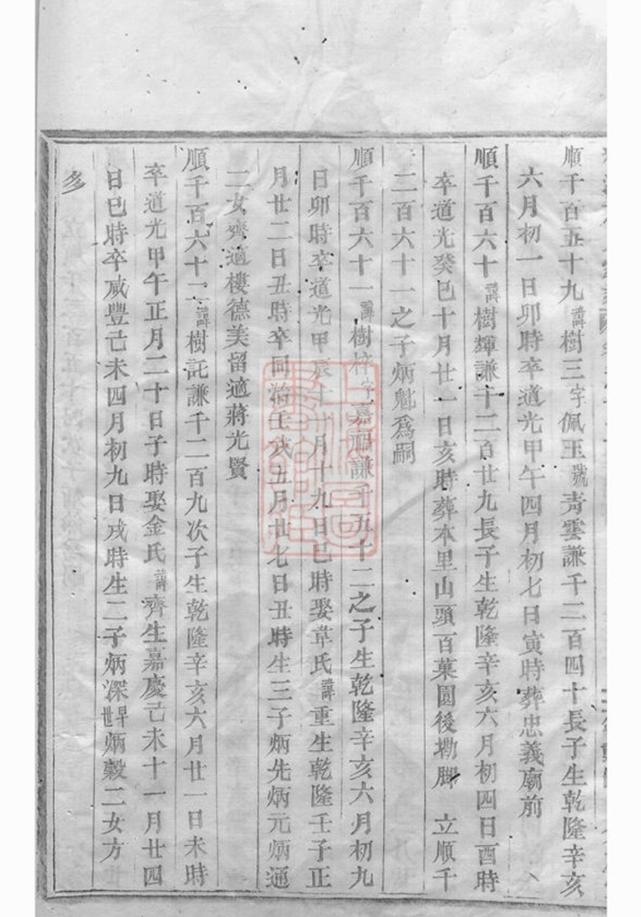 順千百五十九諱樹三字佩玉號青雲謙千二百四十長子生乾隆辛亥
六月初一日卯時卒道光甲午四月初七日寅時葬忠義廟前
順千百六十諱樹輝謙千二百廿九長子生乾隆辛亥六月初四日酉時
卒道光癸巳十月廿一日亥時葬本里山頭百菓園後塝脚 立順千
二百六十一之子炳魁為嗣
順千百六十一諱樹梓字嘉 謙千五十二之子生乾隆辛亥六月初九
日卯時卒道光甲辰十 月十九日巳時娶韋氏諱重生乾隆壬子正
月廿二日丑時卒同治壬戌五月廿七日丑時生三子炳先炳元炳通
二女齊適樓德美留適蔣光賢
順千百六十二諱樹託謙千二百九次子生乾隆辛亥六月廿一日未時
卒道光甲午正月二十日子時娶金氏諱濟生嘉慶己未十一月廿四
日巳時卒咸豐己未四月初九日戌時生二子炳深早世炳穀二女方
多